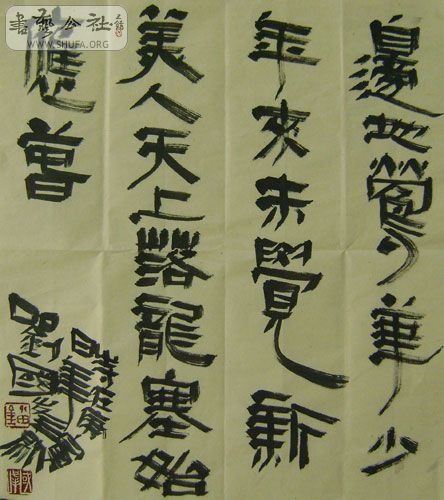 書藝公社
WWW.SHUFA.ORG
邊地鶯華少
年來未覺新
美人天上落龍塞始
應春
時在
劉國